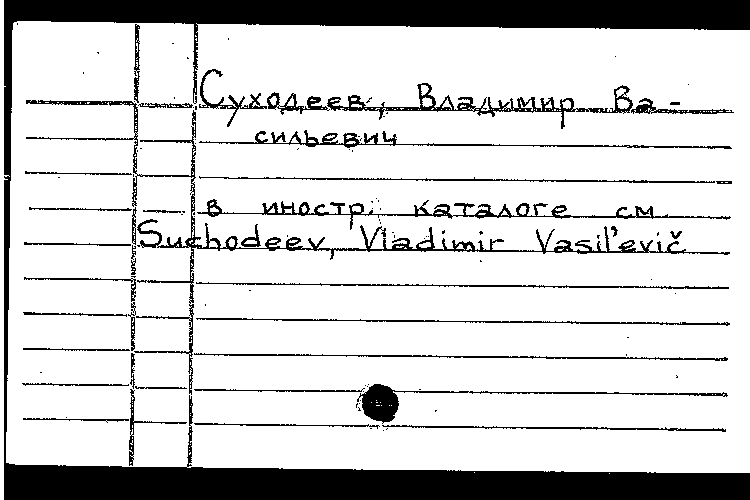 Суходеев, Владимир Ва-
сильевич
в иностр. каталоге см.
Suchodeev, Vladimir Vasil'evič